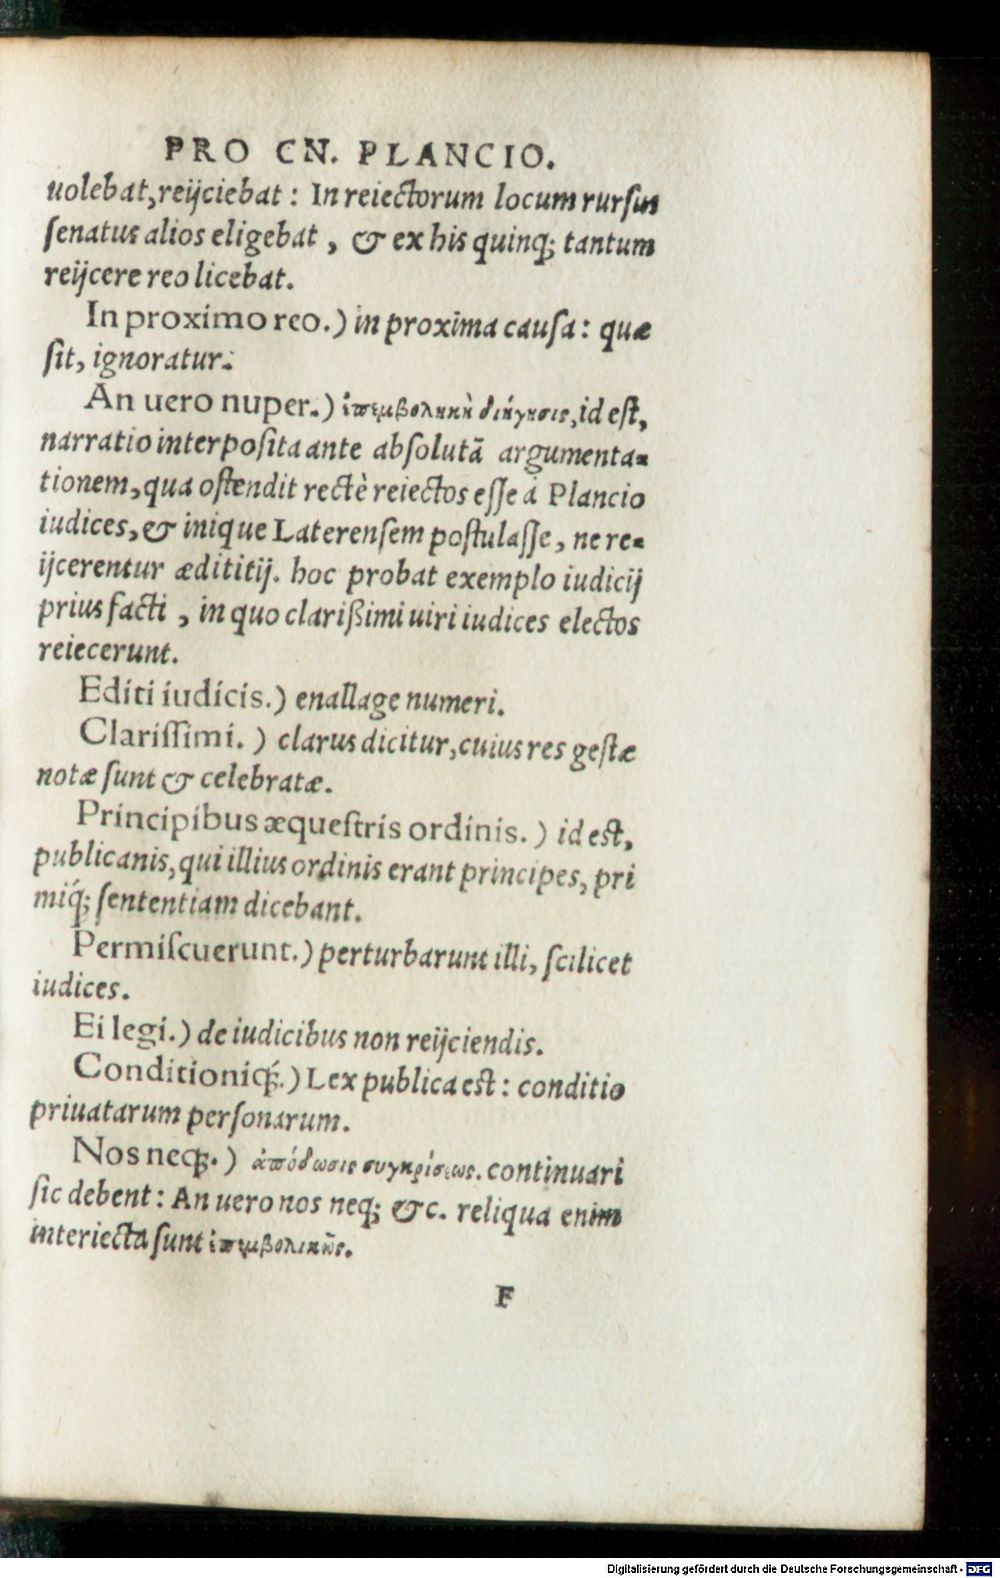 PRO CN. PLANCIO.
uolebat, reijciebat: In reiectorum locum rursus
senatus alios eligebat, & ex his quinq; tantum
reijcere reo licebat.
In proximo reo.) in proxima causa: quæ
sit, ignoratur.
An uero nuper.) ἐπεμβολικὴ διήγησις, id est,
narratio interposita ante absolutā argumenta-
tionem, qua ostendit rectè reiectos esse à Plancio
iudices, & inique Laterensem postulasse, ne re-
ijcerentur ædititij. hoc probat exemplo iudicij
prius facti, in quo clarißimi uiri iudices electos
reiecerunt.
Editi iudicis.) enallage numeri.
Clarissimi.) clarus dicitur, cuius res gestæ
notæ sunt & celebratæ.
Principibus æquestris ordinis.) id est,
publicanis, qui illius ordinis erant principes, pri
miq́; sententiam dicebant.
Permiscuerunt.) perturbarunt illi, scilicet
iudices.
Ei legi.) de iudicibus non reijciendis.
Conditioniq́;.) Lex publica est: conditio
priuatarum personarum.
Nos neq;.) ἀπόδωσις συγκρίσεως. continuari
sic debent: An uero nos neq; &c. reliqua enim
interiecta sunt ἐπεμβολικῶς.
F
Digitalisierung gefördert durch die Deutsche Forschungsgemeinschaft - DFG